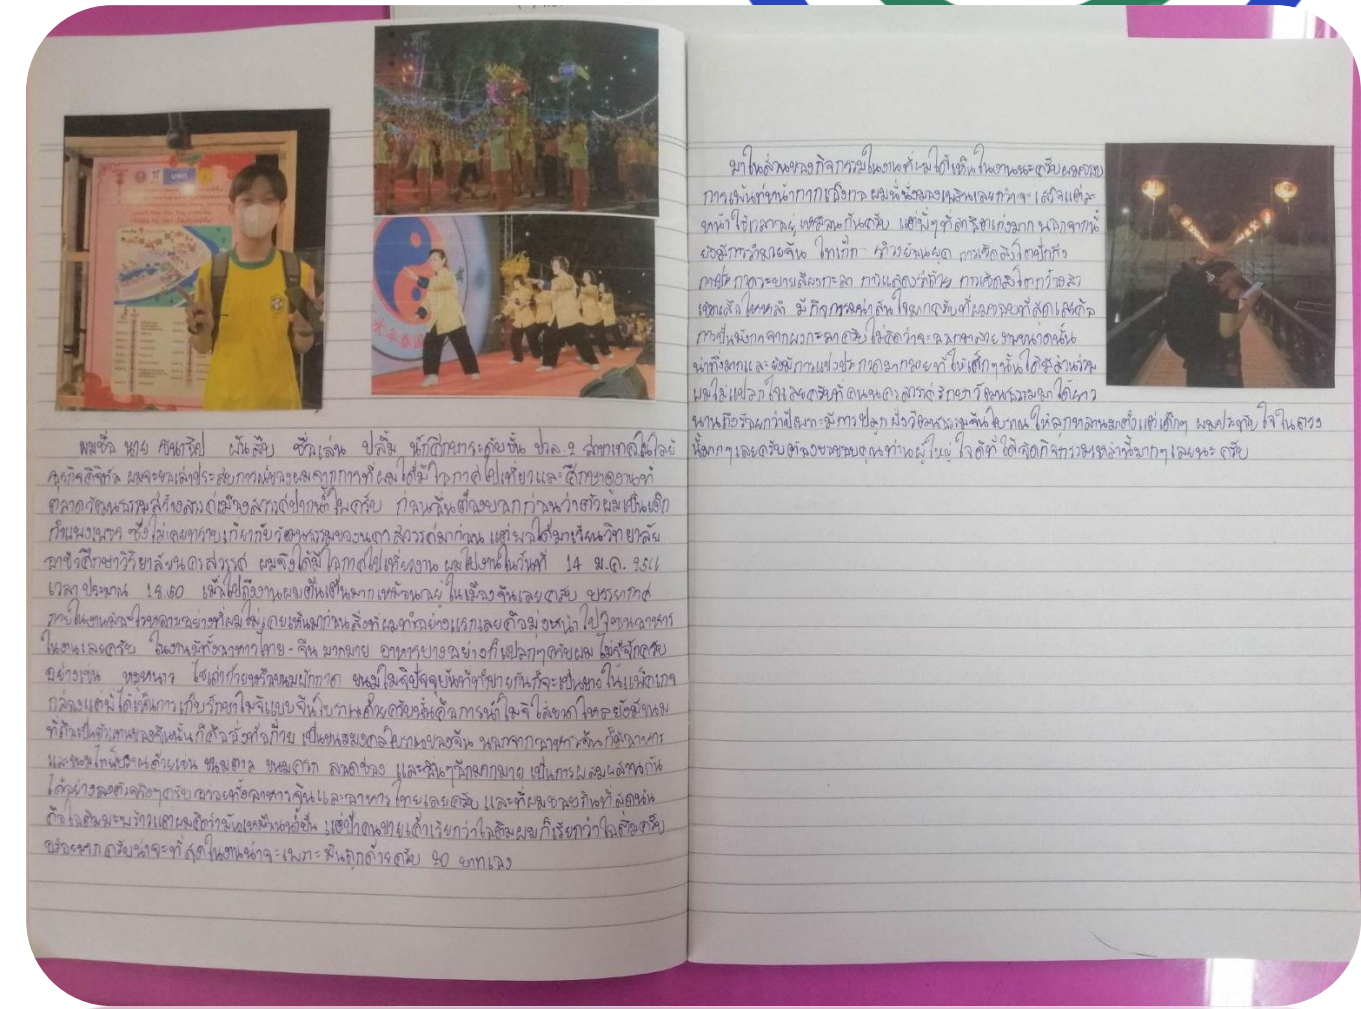 ผมชื่อ นาย ชื่อเล่น ปลื้ม นักศึกษาระดับชั้น ปวส.2 สาขาเทคโนโลยี
ธุรกิจดิจิทัล ผมจะมาเล่าประสบการณ์ของผมจากการที่ผมได้มีโอกาสไปเที่ยวและศึกษาดูงานที่
ตลาดวัฒนธรรมสร้างสรรค์เมืองสวรรค์ปากน้ำโพครับ ก่อนอื่นต้องบอกก่อนว่าตัวผมเป็นเด็ก
กำแพงเพชร ซึ่งไม่เคยทราบเกี่ยวกับวัฒนธรรมของนครสวรรค์มาก่อน แต่พอได้มาเรียนวิทยาลัย
อาชีวศึกษาวิริยาลัยนครสวรรค์ ผมจึงได้มีโอกาสไปเที่ยวงาน ผมไปงานในวันที่ 14 ม.ค. 2566
เวลาประมาณ 18.00 เมื่อไปถึงงานผมตื่นเต้นมากเหมือนอยู่ในเมืองจีนเลยครับ บรรยากาศ
ภายในงานมีอะไรหลายอย่างที่ผมไม่เคยเห็นมาก่อนสิ่งที่ผมทำอย่างแรกเลยคือมุ่งหน้าไปโซนอาหาร
ในงานเลยครับ ในงานมีทั้งอาหารไทย-จีน มากมาย อาหารบางอย่างก็แปลกๆครับผมไม่รู้จักครับ
อย่างเช่น ไชเท้าก้วยหรือขนมผักกาด ขนมโมจิปัจจุบันที่ทำขายกันก็จะเป็นขายในแพ็คเกจ
กล่องแต่นี่ได้เห็นการเก็บรักษาโมจิแบบจีนโบราณด้วยครับนั่นคือการนำโมจิใส่ขวดโหลยังมีขนม
ที่ถือเป็นตัวแทนของจีนนั่นก็คือ เป็นขนมมงคลโบราณของจีน นอกจากอาหารจีนก็มีอาหาร
และขนมไทยโบราณด้วยเช่น ขนมตาล ขนมครก ลอดช่อง และอื่นๆอีกมากมาย เป็นการผสมผสานกัน
ได้อย่างลงตัวจริงๆครับ อาหารจีนและอาหารไทยเลยครับ และที่ผมชอบกินที่สุดนั้น
คือไอติมมะพร้าวแต่ผมคิดว่ามันเหมือนน้ำปั่น แต่ป้าคนขายเค้าเรียกว่าไอติมผมก็เรียกว่าไอติมครับ
อร่อยมากครับน่าจะที่สุดในงานน่าจะเพราะมันถูกด้วยครับ 20 บาทเอง
มาในส่วนของกิจกรรมในงานที่ผมได้เห็นในงานนะครับผมชอบ
การเพ้นท์หน้ากากเอ็งกอ ผมนั่งมองเพลินเลยกว่าจะเสร็จแต่ละ
หน้าใช้เวลาอยู่เหมือนกันครับ แต่พี่ๆที่สาธิตเก่งมาก นอกจากนี้
ยังมีการรำมวยจีน ไทเก๊ก การเชิดสิงโตปักกิ่ง
การแสดง การเชิดสิงโตกว๋องสิว
เชิดเสือไหหลำ มีกิจกรรมน่าสนใจมากครับที่ผมชอบที่สุดเลยคือ
การปั้นมังกร ไม่คิดว่าจะออกมาสวยงามขนาดนั้น
น่าทึ่งมากและยังมีการแข่งประกวดมากมายที่ให้เด็กๆนั้นได้มีส่วนร่วม
ผมไม่แปลกใจเลยครับที่คนนครสวรรค์รักษาวัฒนธรรมมาได้ยาว
นานถึงร้อยกว่าปีเพราะมีการปลูกฝังวัฒนธรรมจีนโบราณให้ลูกหลานมาตั้งแต่เด็กๆ ผมประทับใจในตรง
นี้มากๆเลยครับต้องขอขอบคุณท่านผู้ใหญ่ใจดีที่ได้จัดกิจกรรมเหล่านี้มากๆเลยนะครับ